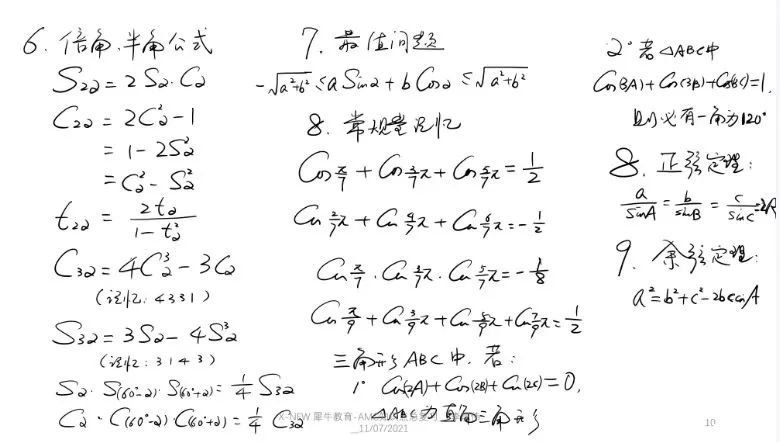 6. 倍角.半角公式
S₂₂ = 2S₂·C₂
C₂₂ = 2C₂² - 1
= 1 - 2S₂²
= C₂² - S₂²
t₂₂ = 2t₂ / 1 - t₂²
C₃₂ = 4C₂³ - 3C₂
(记忆: 4331)
S₃₂ = 3S₂ - 4S₂³
(记忆: 3143)
S₂·S(60°-2)·S(60°+2) = 1/4 S₃₂
C₂·C(60°-2)C(60°+2) = 1/4 C₃₂
7. 最值问题
-√a²+b² ≤ a Sin2 + b Cos2 ≤ √a²+b²
8. 常规量记忆
Cos π/7 + Cos 3/7 π + Cos 5/7 π = 1/2
Cos 2/7 π + Cos 4/7 π + Cos 6/7 π = -1/2
Cos π/7 · Cos 3/7 π · Cos 5/7 π = -1/8
Cos π/9 + Cos 3/9 π + Cos 5/9 π + Cos 7/9 π = 1/2
三角形 ABC 中, 若:
1° Cos(2A) + Cos(2B) + Cos(2C) = 0,
△ABC为直角三角形
2° 若△ABC中
Cos(3A) + Cos(3B) + Cos(3C) = 1,
则必有一角为120°
8. 正弦定理:
a/SinA = b/sinB = c/sinC = 2R
9. 余弦定理:
a² = b² + c² - 2bccosA
X-NEW 犀牛教育-AM
11/07/2021
10